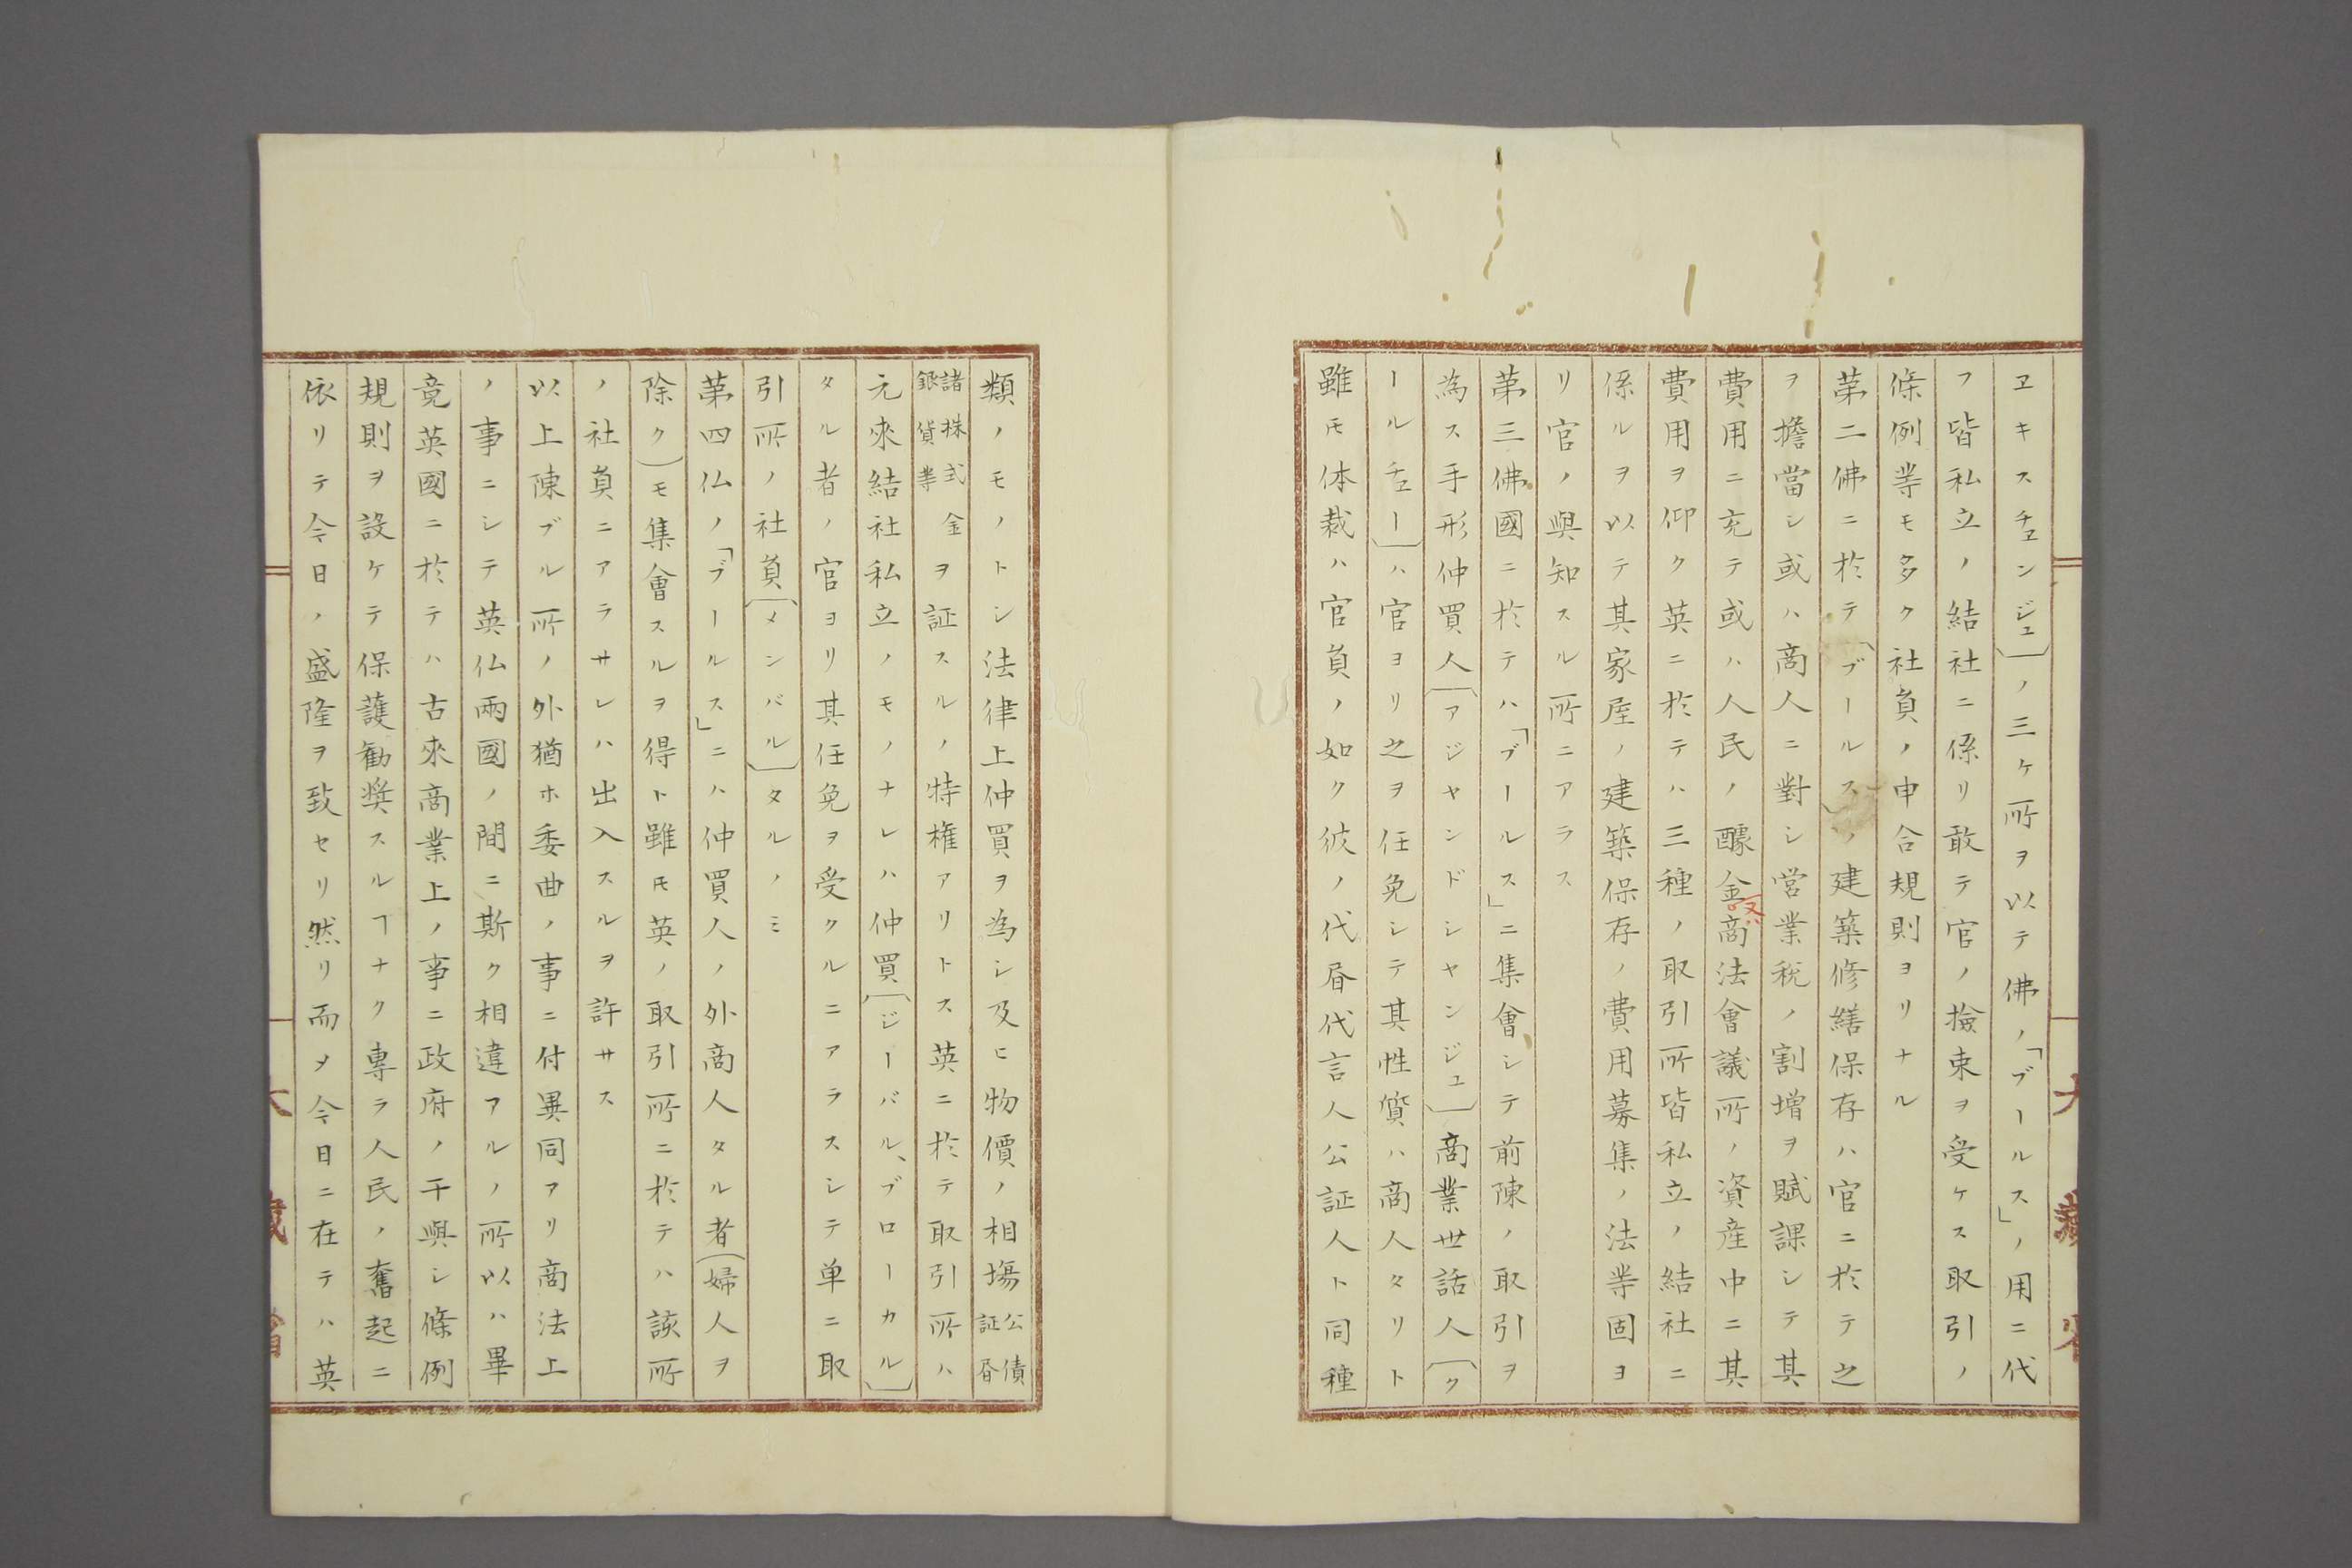 ヱキスチヱンジュ〕ノ三ケ所ヲ以テ佛ノ「ブールス」ノ用ニ代
フ皆私立ノ結社ニ係リ敢テ官ノ撿束ヲ受ケス取引ノ
條例等モ多ク社員ノ申合規則ヨリナル
第二佛ニ於テ「ブールス」ノ建築修繕保存ハ官ニ於テ之
ヲ擔當シ或ハ商人ニ對シ営業税ノ割増ヲ賦課シテ其
費用ニ充テ或ハ人民ノ醵金又ハ商法會議所ノ資産中ニ其
費用ヲ仰ク英ニ於テハ三種ノ取引所皆私立ノ結社ニ
係ルヲ以テ其家屋ノ建築保存ノ費用募集ノ法等固ヨ
リ官ノ與知スル所ニアラス
第三佛國ニ於テハ「ブールス」ニ集會シテ前陳ノ取引ヲ
為ス手形仲買人〔アジャンドシャンジュ〕商業世話人〔ク
ールチヱー〕ハ官ヨリ之ヲ任免シテ其性質ハ商人タリト
雖モ体裁ハ官員ノ如ク彼ノ代昏代言人公証人ト同種
類ノモノトシ法律上仲買ヲ為シ及ヒ物價ノ相塲公債証昏
諸株式金銀貨等ヲ証スルノ特権アリトス英ニ於テ取引所ハ
元來結社私立ノモノナレハ仲買〔ジーバル、ブローカル〕
タル者ノ官ヨリ其任免ヲ受クルニアラスシテ単ニ取
引所ノ社員〔メンバル〕タルノミ
第四仏ノ「ブールス」ニハ仲買人ノ外商人タル者(婦人ヲ
除ク)モ集會スルヲ得ト雖モ英ノ取引所ニ於テハ該所
ノ社員ニアラサレハ出入スルヲ許サス
以上陳ブル所ノ外猶ホ委曲ノ事ニ付異同アリ商法上
ノ事ニシテ英仏兩國ノ間ニ斯ク相違アルノ所以ハ畢
竟英國ニ於テハ古來商業上ノ事ニ政府ノ干與シ條例
規則ヲ設ケテ保護勧奨スルヿナク專ラ人民ノ奮起ニ
依リテ今日ノ盛隆ヲ致セリ然リ而メ今日ニ在テハ英
大藏省